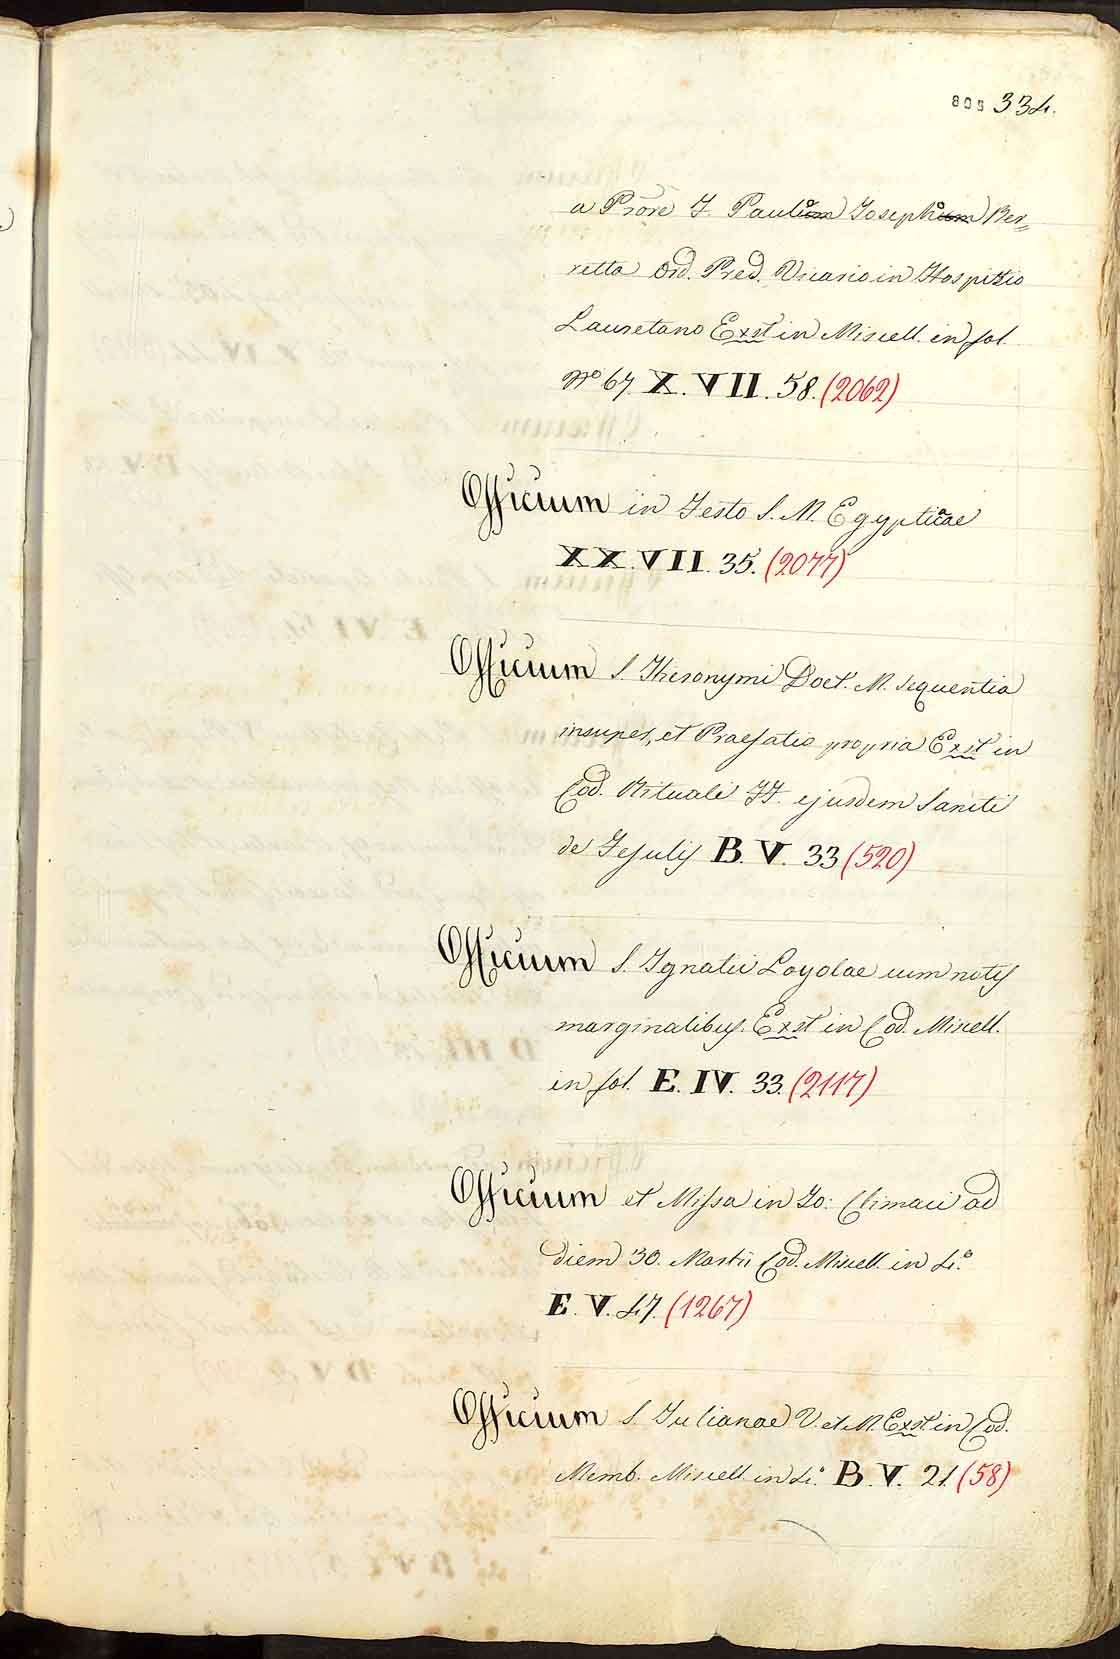 805 334.
a Prõre F. Paulo Josepho Ber=
retta Ord. Pred. Vicario in Hospitio
Lauretano Exst in Miscell. in fol.
Nº 67. X. VII. 58. (2062)
Officium in Festo S. M. Egypticae
XX. VII. 35. (2077)
Officium S. Hieronymi Doct. M. sequentia
insuper, et Praefatio propria Exst in
Cod. Rituali FF. ejusdem Sancti
de Fesulis B. V. 33 (520)
Officium S. Ignatii Loyolae cum notis
marginalibus. Exst in Cod. Miscell.
in fol. E. IV. 33. (2117)
Officium et Missa in Jo: Climaci ad
diem 30. Martii Cod. Miscell. in 4.º
E. V. 47. (1267)
Officium S. Julianae V. et M. Exst in Cod.
Memb. Miscell. in 4.º B. V. 21. (58)